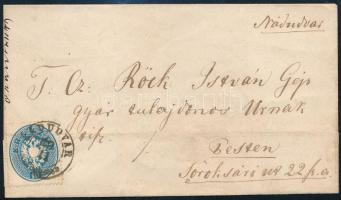 Nádudvar
T. Cz. Röck István Gép
gyár tulajdonos Urnak
Pesten
Soroksári ut 22
NÁDUDVAR